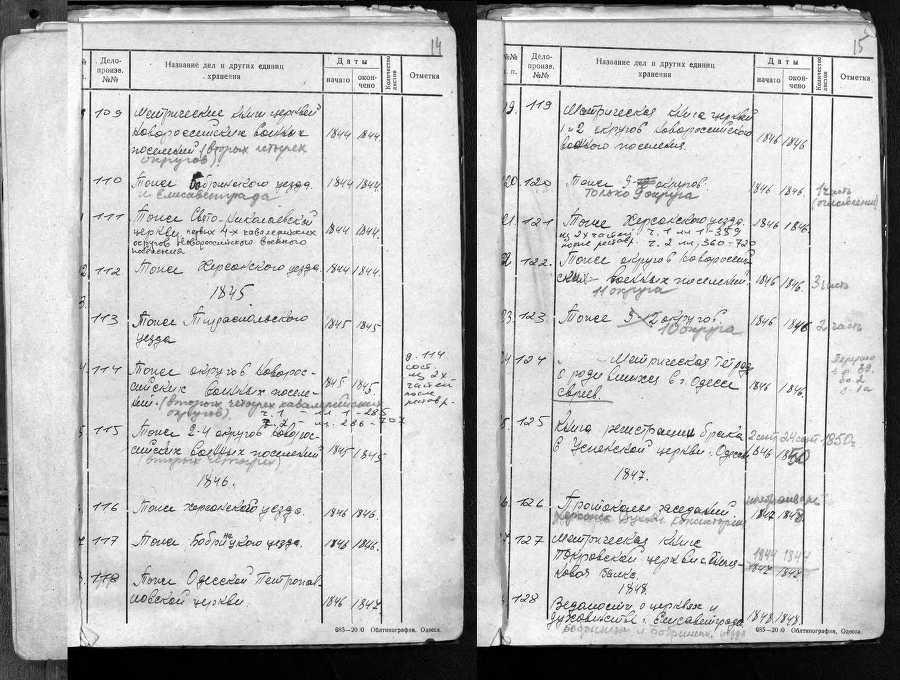 14
Дело-
произв.
№№
Название дел и других единиц
хранения
Даты
начато
окон-
чено
Количество
листов
Отметка
109
Метрические книги церквей
Новороссийских военных
поселений (вторых четырех
округов).
1844 1844.
110
Тоже Бобринского уезда
и Елисаветграда
1844 1844.
111
Тоже Свято-Николаевской
церкви первых 4-х кавалерийских
округов Новороссийского военного
поселения
1844 1844.
112
Тоже Херсонского уезда
1844 1844.
1845
113
Тоже Тираспольского
уезда
1845 1845
114
Тоже округов Новорос-
сийских военных поселе-
ний. (вторых четырех кавалерийских
округов). ч. 1 - лл 1 - 285
ч. 2 лл. 286 - 707
1845 1845.
д. 114
сост.
из 2х
частей
после
реставр.
115
Тоже 2-4 округов Новорос-
сийских военных поселений
(вторых четырех)
1845 1845
1846.
116
Тоже Херсонского уезда.
1846 1846.
117
Тоже Бобринецкого уезда.
1846 1846.
118
Тоже Одесской Петропав-
ловской церкви.
1846 1847
685—20 0 Облтипография, Одесса.
15
№№
п.
Дело-
произв.
№№
Название дел и других единиц
хранения
Даты
начато
окон-
чено
Количество
листов
Отметка
9. 119
Метрическая книга церквей
1 и 2 округов Новороссийского
военного поселения.
1846 1846
20. 120
Тоже 9 округов.
только 9 округа
1846 1846.
1 часть
21. 121
Тоже Херсонского уезда
из 2х частей ч. 1 лл 1 - 359
после реставр. ч. 2 лл, 360 - 720
1846 1846.
22 122.
Тоже округов Новороссий
ских военных поселений.
11 округа
1846 1846.
3 часть
23. 123
Тоже округов
10 округа
1846 1846
2 часть
24 124
Метрическая тетрадь
о родившихся в г. Одессе
евреев.
1846 1846.
125
Книга регистрации брака
в Успенской церкви г. Одессы
2 сент 24 сент 1850г
1846 1850
1847.
126.
Протоколы заседаний
Херсонск. духовн. консистории
1847 1848.
127
Метрическая книга
Покровской церкви с.
Новая Балка.
1844 1844
1847 1847
1848
128
Ведомости о церквях и
духовенстве г. Елисаветграда
Бобринца и Бобринецк. уезда
1848 1848.
685—20 0 Облтипография, Одесса.